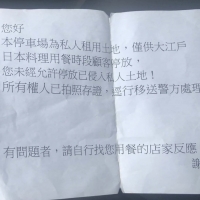 您好
本停車場為私人租用土地，僅供大江戶
日本料理用餐時段顧客停放，
您未經允許停放已侵入私人土地！
所有權人已拍照存證，逕行移送警方處理
有問題者，請自行找您用餐的店家反應
謝